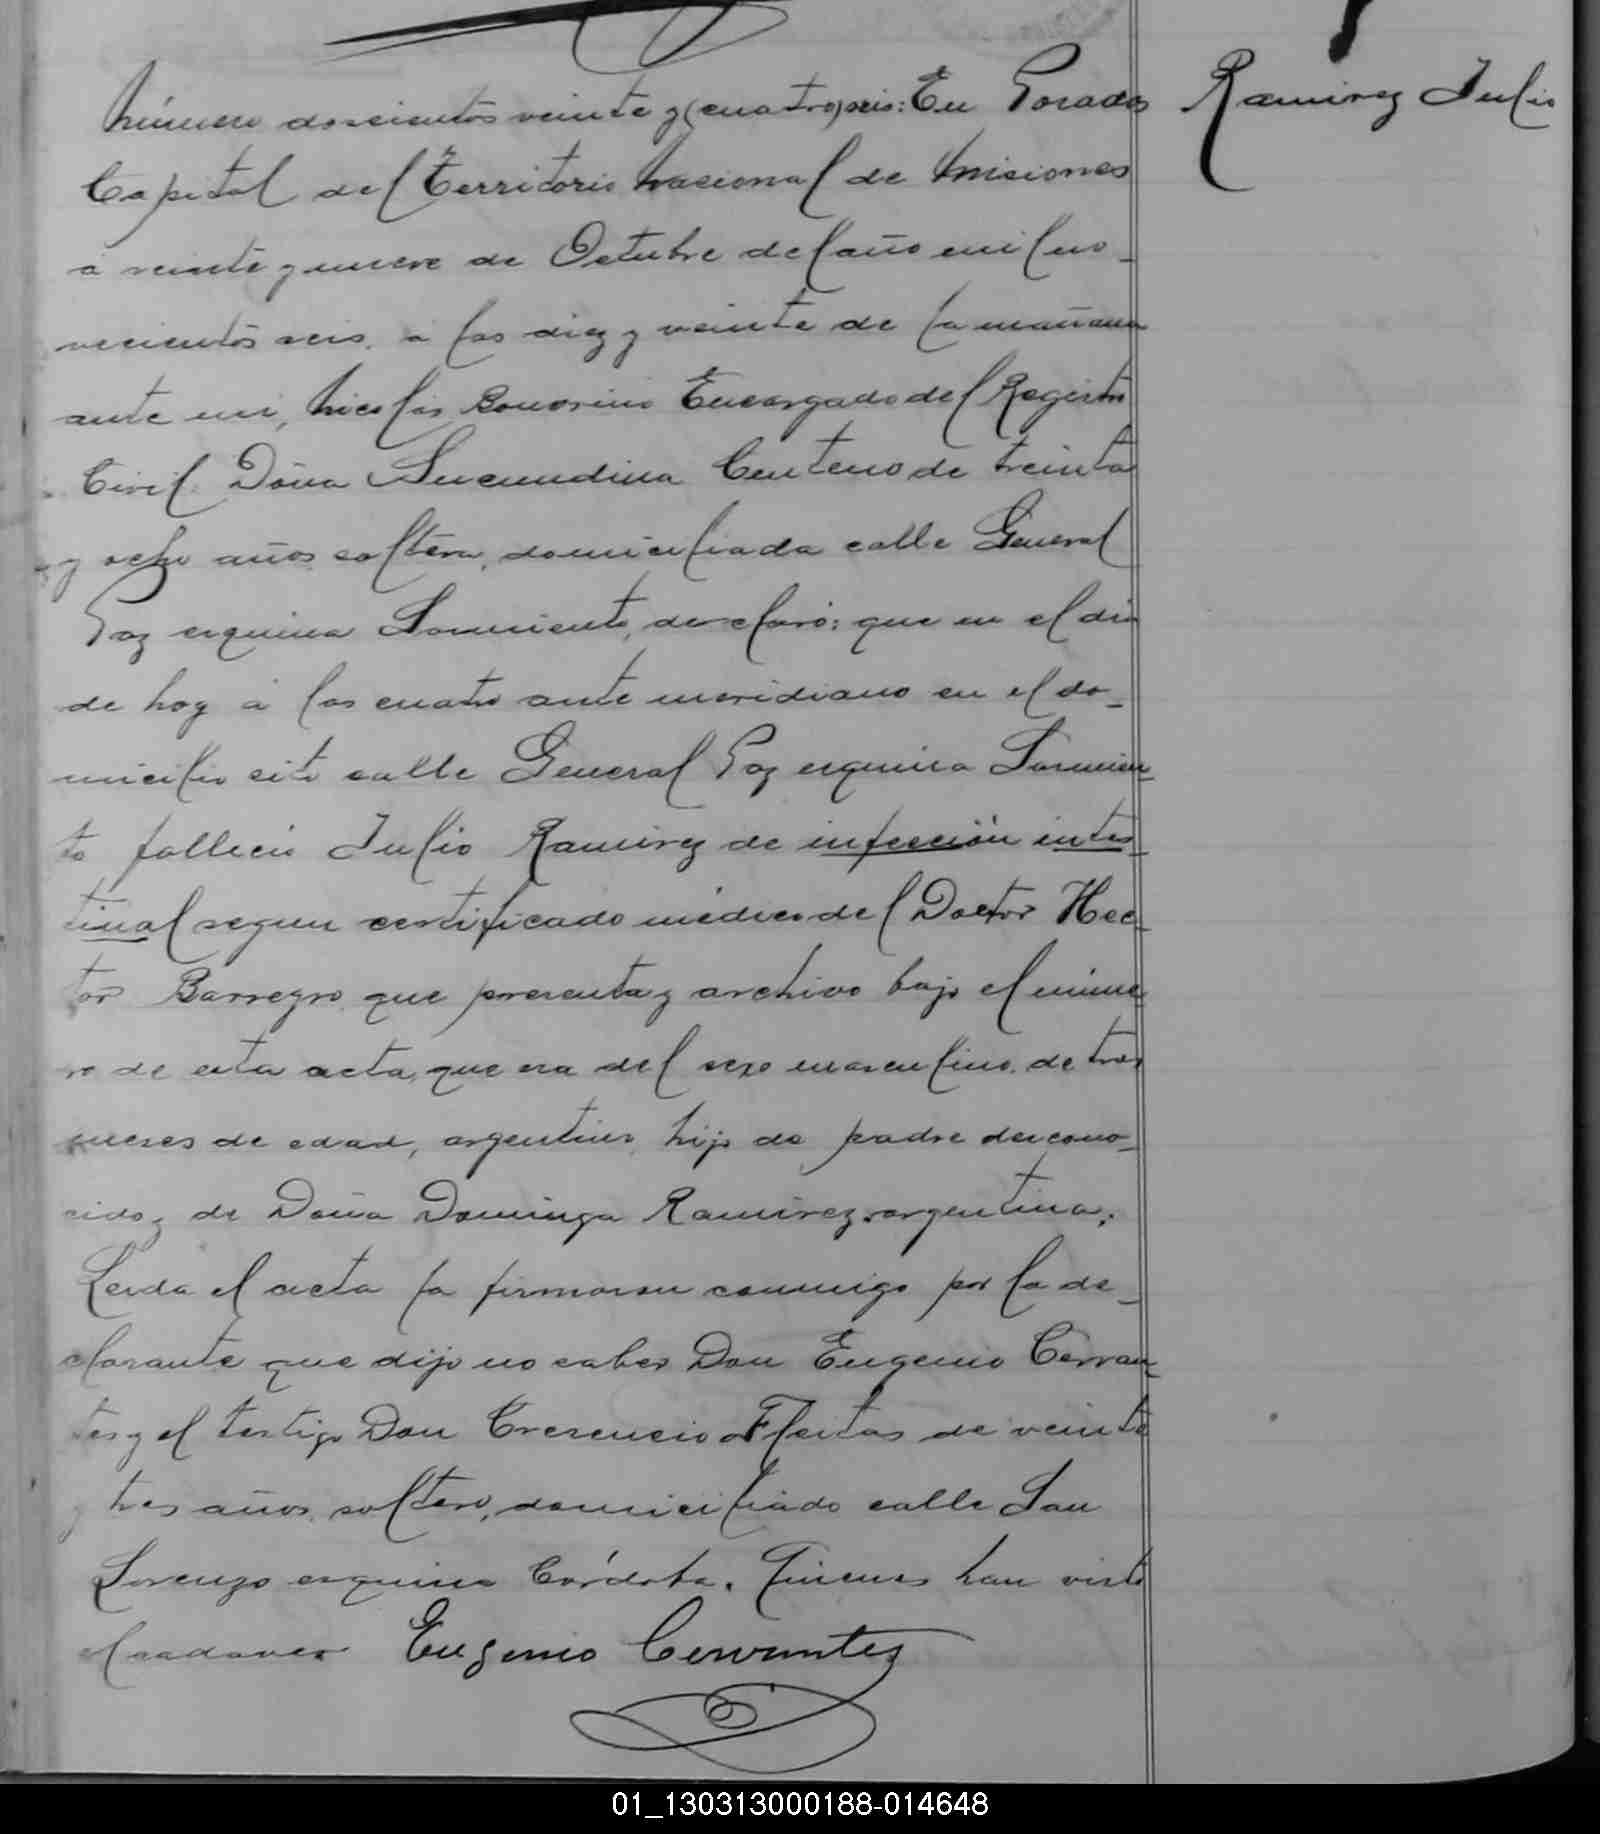 Número doscientos veinte y (cuatro) seis: En Posadas
Ramirez Julio
Capital del Territorio Nacional de Misiones
á veinte y nueve de Octubre del año mil no_
vecientos seis, á las diez y veinte de la mañana
ante mi, Nicolás Bonorino Encargado del Registro
Civil: Doña Secundina Centeno de treinta
y ocho años, soltera, domiciliada calle General
Paz esquina Sarmiento, declaró: que en el dia
de hoy á las cuatro ante meridiano en el do_
micilio sito calle General Paz esquina Sarmien_
to falleció Julio Ramirez de infección intes_
tinal segun certificado médico del Doctor Hec_
tor Barreyro que presenta y archivo bajo el núme
ro de esta acta, que era del sexo masculino, de tres
meses de edad, argentino, hijo de padre descono_
cido y de Doña Dominga Ramirez, argentina.
Leida el acta la firmaron conmigo por la de_
clarante que dijo no saber Don Eugenio Cervan_
tes y el testigo Don Cresencio Fleitas de veinte
y tres años, soltero, domiciliado calle San
Lorenzo esquina Córdoba. Quienes han visto
el cadaver Eugenio Cervantes
01_130313000188-014648